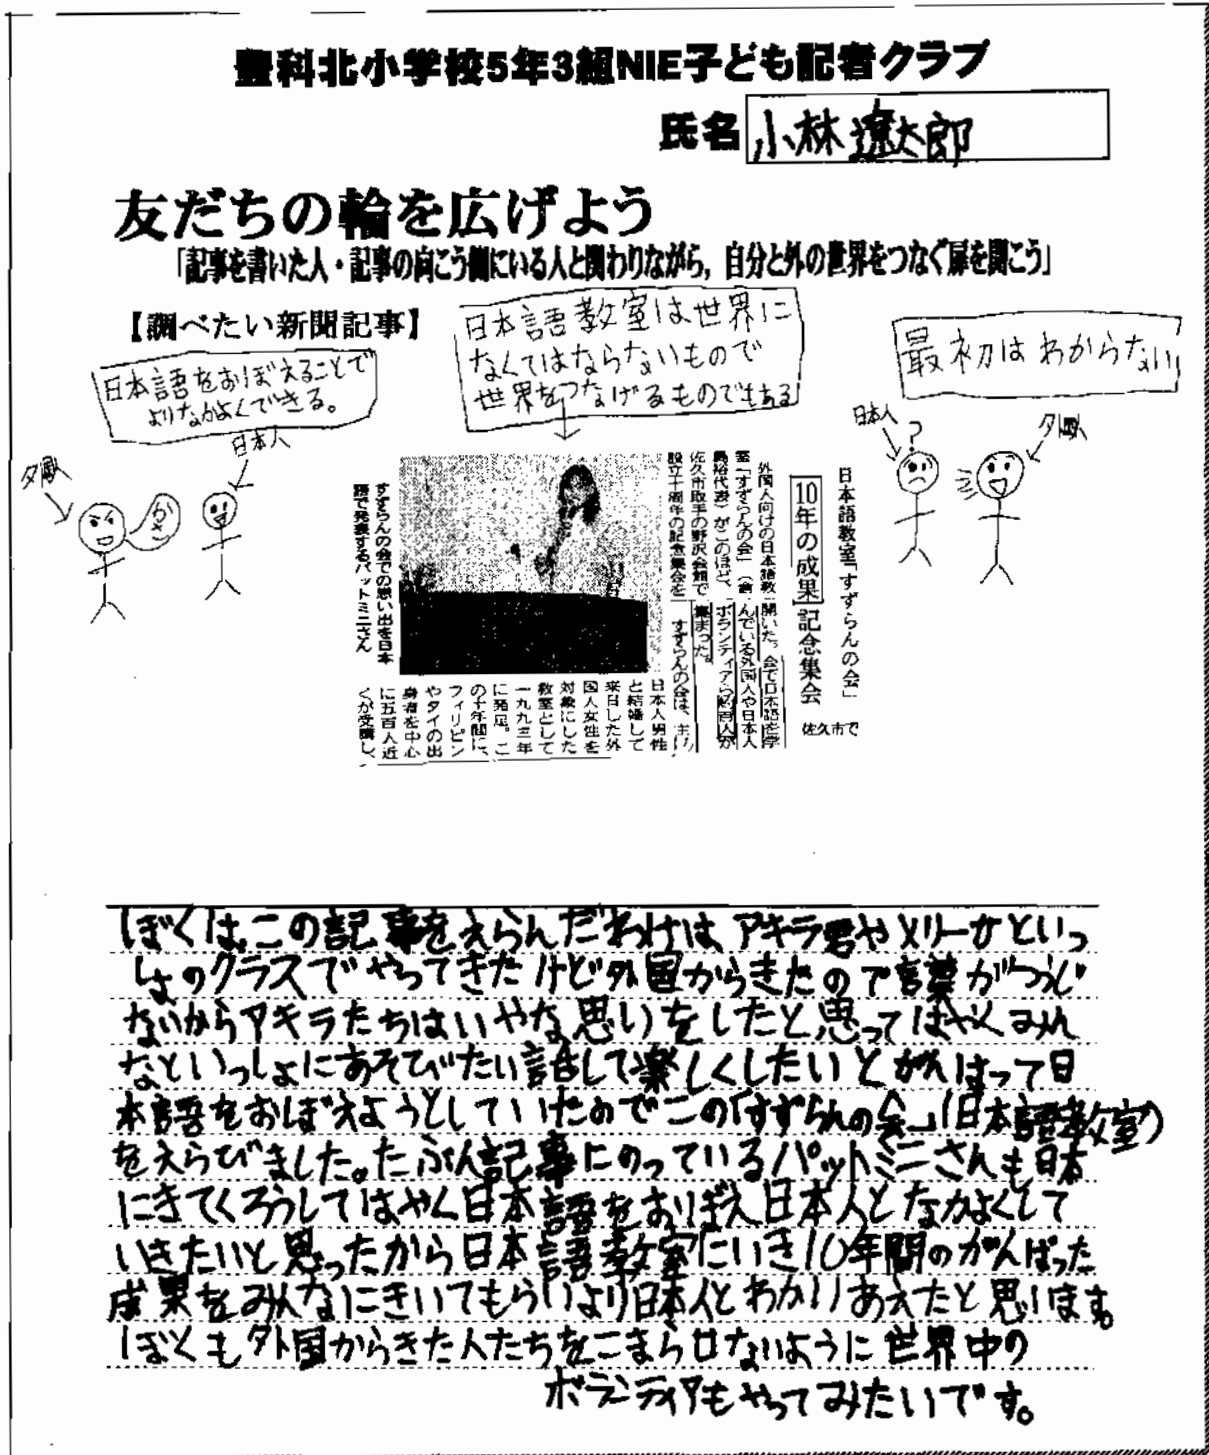 豊科北小学校5年3組NIE子ども記者クラブ
氏名 小林遼太郎
友だちの輪を広げよう
「記事を書いた人・記事の向こう側にいる人と関わりながら，自分と外の世界をつなぐ扉を開こう」
【調べたい新聞記事】
日本語をおぼえることで
よりなかよくできる。
日本人
日本語教室は世界に
なくてはならないもので
世界をつなげるものでもある
最初はわからない
日本人
？
日本語教室「すずらんの会」
10年の成果記念集会
佐久市で
外国人向けの日本語教
室「すずらんの会」
裕代表）がこのほど、
佐久市取手の野沢会館で
設立十周年の記念集会を
開いた。会で日本語を学
んでいる外国人や日本人
ボランティアら約百人が
集まった。
すずらんの会は、主に
日本人男性
と結婚して
来日した外
国人女性を
対象にした
教室として
一九九三年
に発足。こ
の十年間に、
フィリピン
やタイの出
身者を中心
に五百人近
くが受講し、
すずらんの会での思い出を日本
語で発表するパットミニさん
ぼくは、この記事をえらんだわけは、アキラ君やメリーサといっ
しょのクラスでやってきたけど外国からきたので言葉がつうじ
ないからアキラたちはいやな思いをしたと思ってはやくみん
なといっしょにあそびたい話して楽しくしたいとがんばって日
本語をおぼえようとしていたのでこの「すずらんの会」(日本語教室)
をえらびました。たぶん記事にのっているパットミニさんも日本
にきてくろうしてはやく日本語をおぼえ日本人となかよくして
いきたいと思ったから日本語教室にいき10年間のがんばった
成果をみんなにきいてもらいより日本人とわかりあえたと思います。
ぼくも外国からきた人たちをこまらせないように世界中の
ボランティアもやってみたいです。